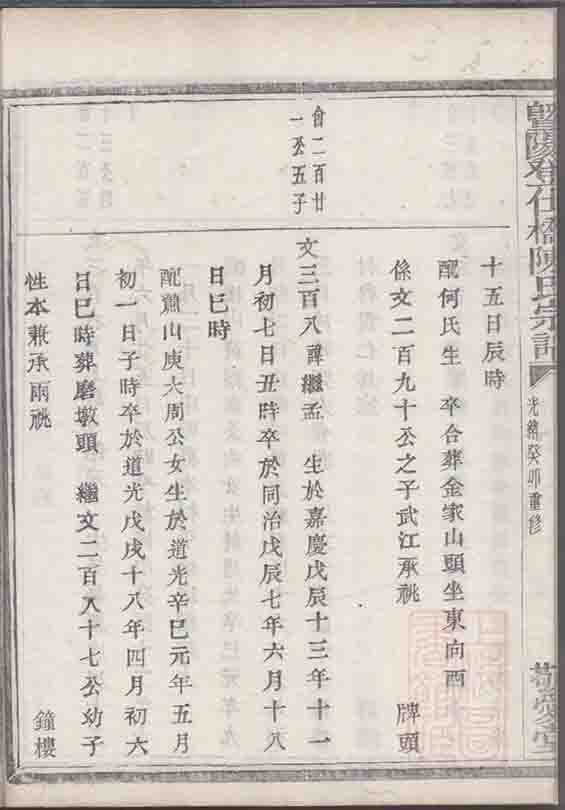 暨陽登仕橋陳氏宗譜
光緒癸卯重修
敬愛堂
十五日辰時
配何氏生　卒合葬金家山頭坐東向西
係文二百九十公之子武江承祧　牌頭
會二百廿
一公五子
文三百八諱繼孟　生於嘉慶戊辰十三年十一
月初七日丑時卒於同治戊辰七年六月十八
日巳時
配𤋮山庚大周公女生於道光辛巳元年五月
初一日子時卒於道光戊戌十八年四月初六
日巳時葬磨墩頭　繼文二百八十七公幼子
性本兼承兩祧　鐘樓